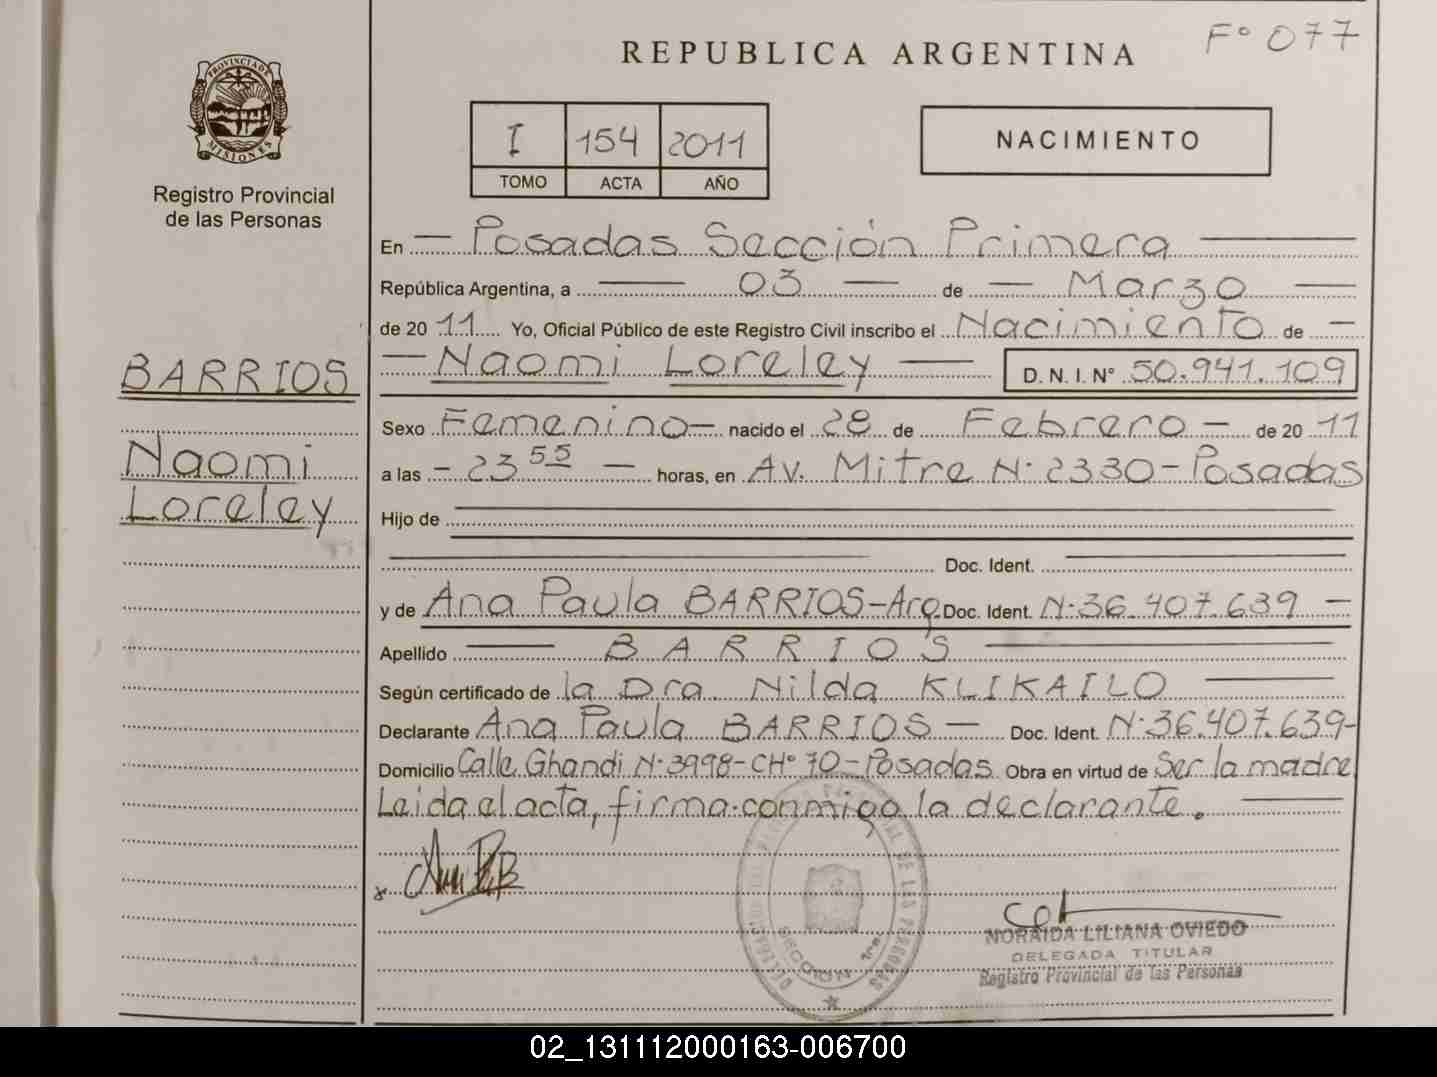 F° 077
REPUBLICA ARGENTINA
PROVINCIA DE MISIONES
Registro Provincial
de las Personas
I 154 2011
TOMO ACTA AÑO
NACIMIENTO
En — Posadas Sección Primera —
República Argentina, a — 03 — de — Marzo —
de 20 11 Yo, Oficial Público de este Registro Civil inscribo el Nacimiento de —
— Naomi Loreley — D. N. I. N° 50.941.109
BARRIOS
Naomi
Loreley
Sexo Femenino — nacido el 28 de Febrero — de 20 11
a las — 23 55 — horas, en Av. Mitre N° 2330 - Posadas
Hijo de
Doc. Ident.
y de Ana Paula BARRIOS - Arg. Doc. Ident. N° 36.407.639 —
Apellido — BARRIOS —
Según certificado de la Dra. Nilda KLIKAILO —
Declarante Ana Paula BARRIOS — Doc. Ident. N° 36.407.639 -
Domicilio Calle Ghandi N° 3998 - CH° 70 - Posadas Obra en virtud de Ser la madre
Leida el acta, firma conmigo la declarante. —
SECCION 1ra
NORAIDA LILIANA OVIEDO
DELEGADA TITULAR
Registro Provincial de las Personas
02_131112000163-006700